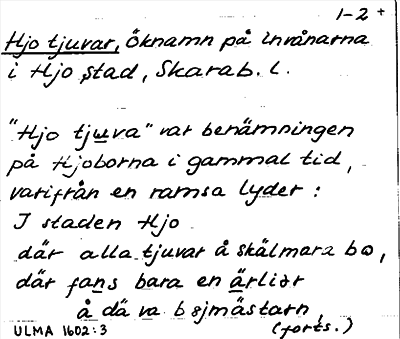 1-2 +
Hjo tjuvar, öknamn på invånarna
i Hjo stad, Skarab. l.
"Hjo tjuva" var benämningen
på Hjoborna i gammal tid,
varifrån en ramsa lyder:
I staden Hjo
där alla tjuvar å skälmara bo,
där fans bara en ärlior
å dä va bojmästarn
ULMA 1602:3 (forts.)